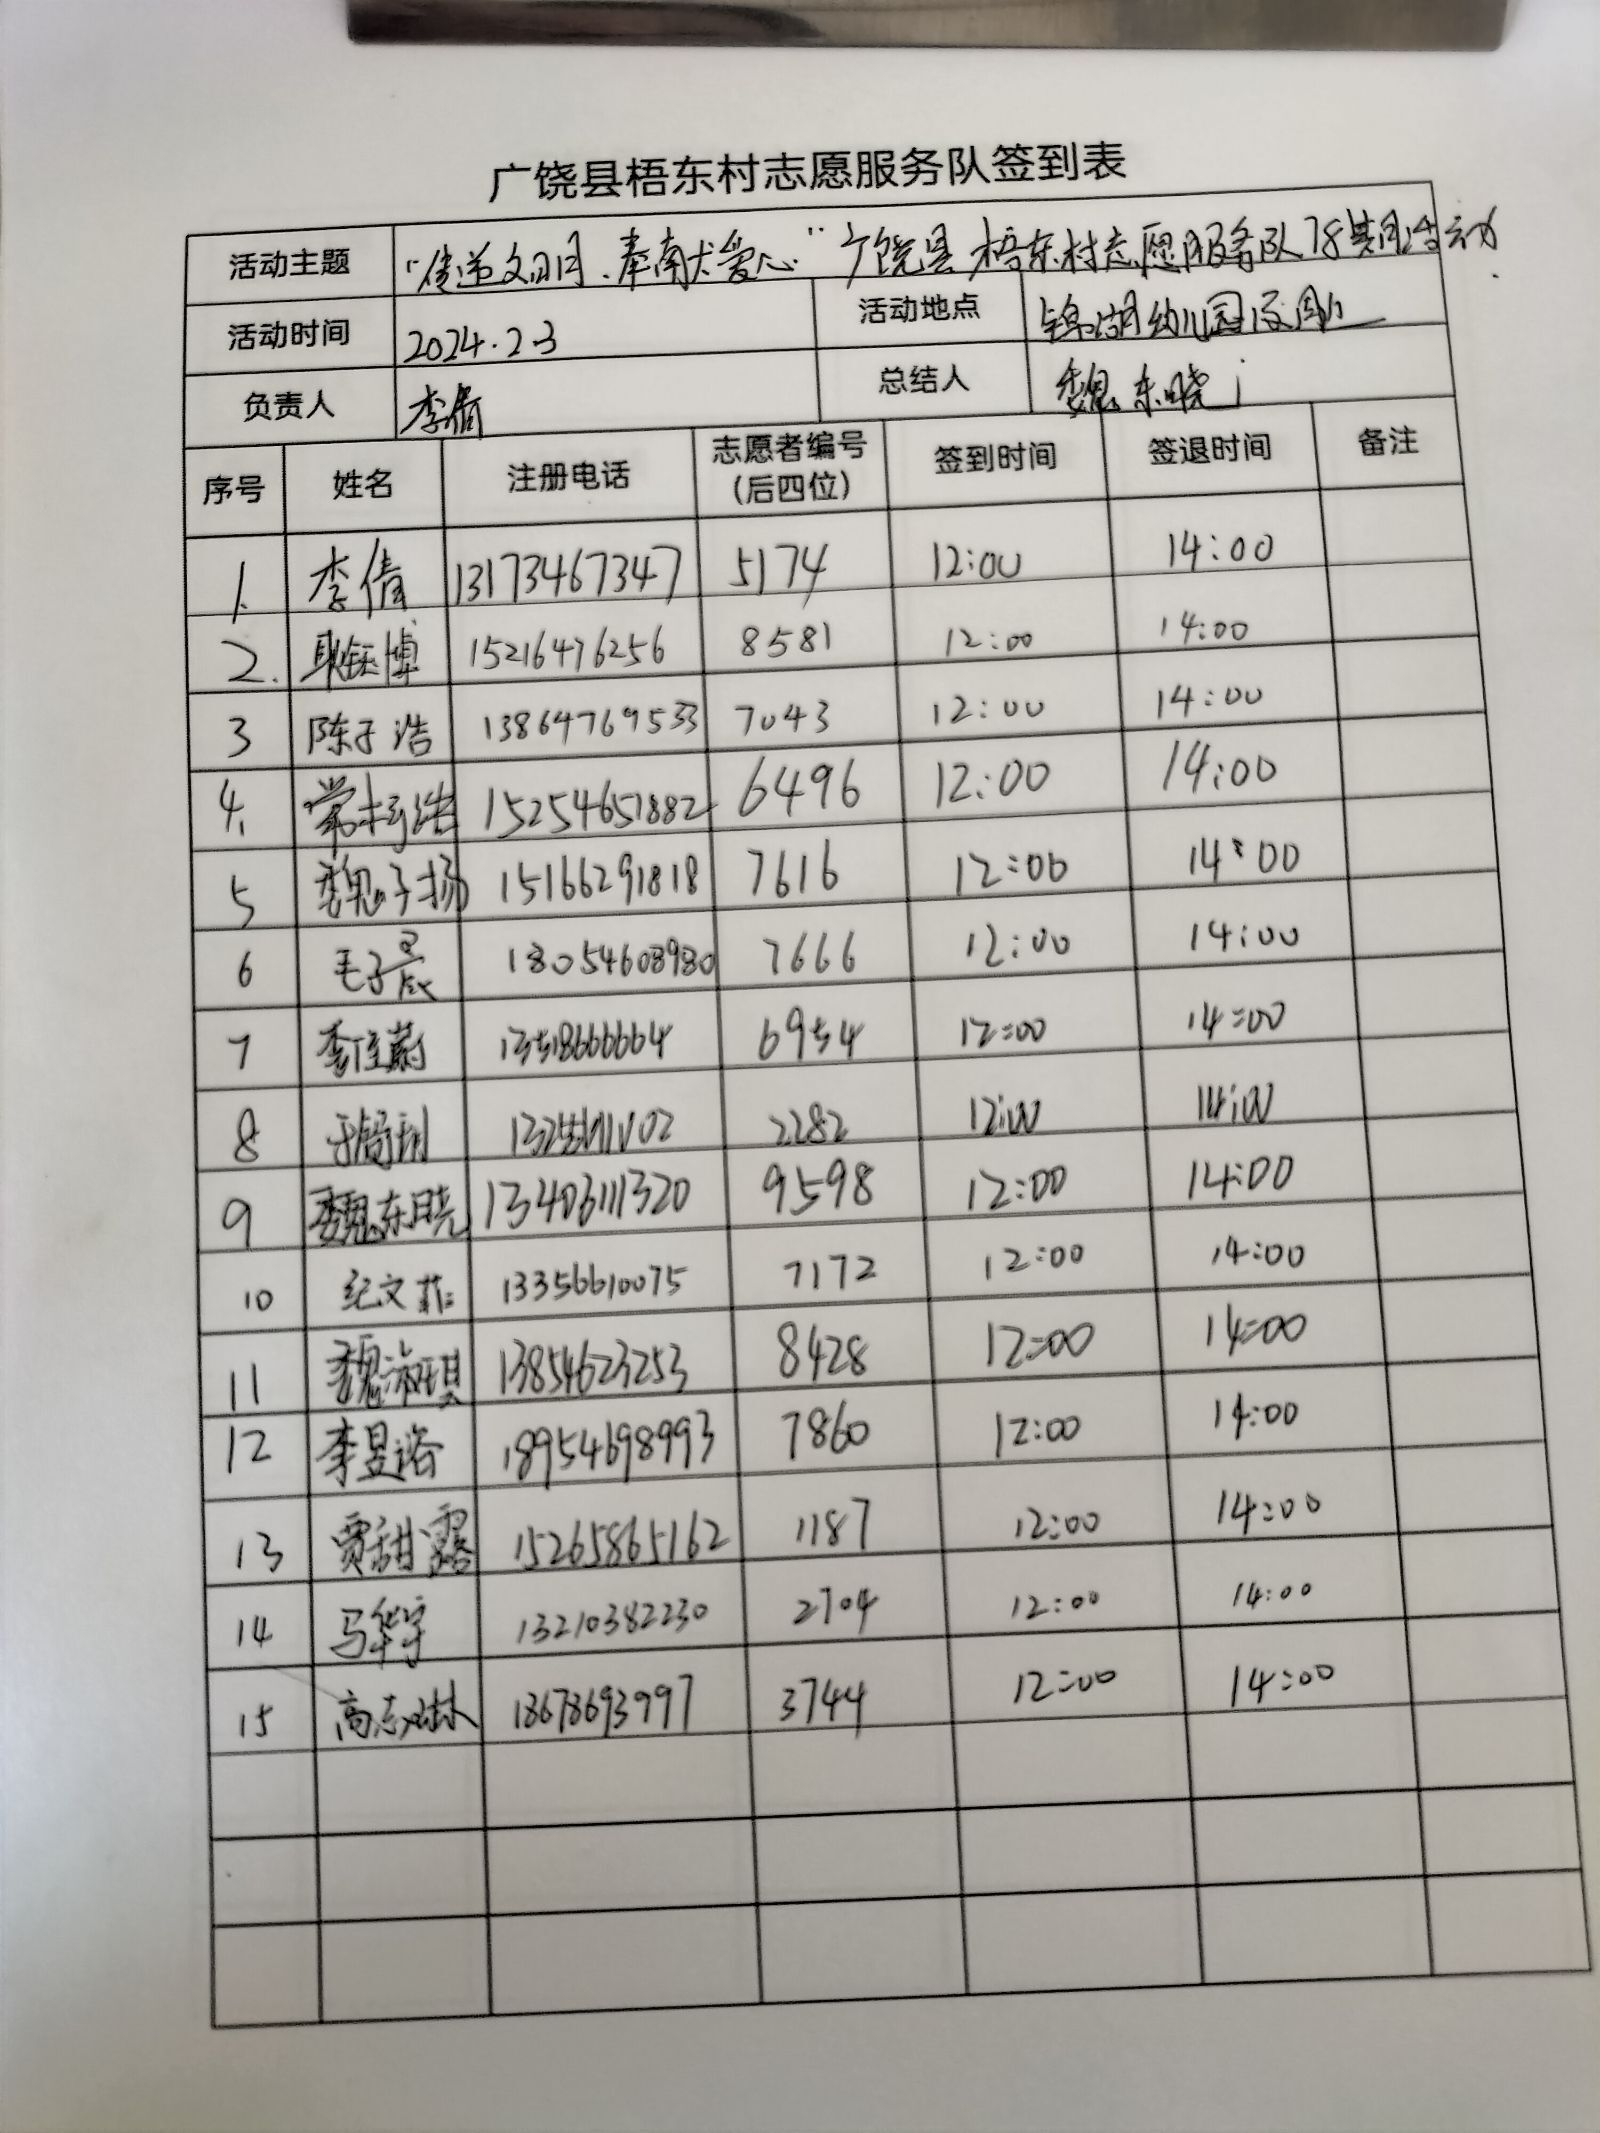 广饶县梧东村志愿服务队签到表
活动主题 “传递文明、奉献爱心”广饶县梧东村志愿服务队78期活动
活动时间 2024.2.3 活动地点 锦湖幼儿园及周边
负责人 李倩 总结人 魏东晓
序号 姓名 注册电话 志愿者编号（后四位） 签到时间 签退时间 备注
1. 李倩 13173467347 5174 12:00 14:00
2. 耿钰博 15216476256 8581 12:00 14:00
3 陈子浩 13864769533 7043 12:00 14:00
4. 常梓浩 15254651882 6496 12:00 14:00
5 魏子扬 15166291818 7616 12:00 14:00
6 毛子晨 18054608980 7666 12:00 14:00
7 李佳蔚 13518666664 6954 12:00 14:00
8 2282 12:00 14:00
9 魏东晓 13406111320 9598 12:00 14:00
10 纪文菲 13356610075 7172 12:00 14:00
11 魏淑琪 13854623253 8428 12:00 14:00
12 李昱谘 18954698993 7860 12:00 14:00
13 贾甜露 15265865162 1187 12:00 14:00
14 马华宇 13210382230 2704 12:00 14:00
15 高志琳 18678693997 3744 12:00 14:00